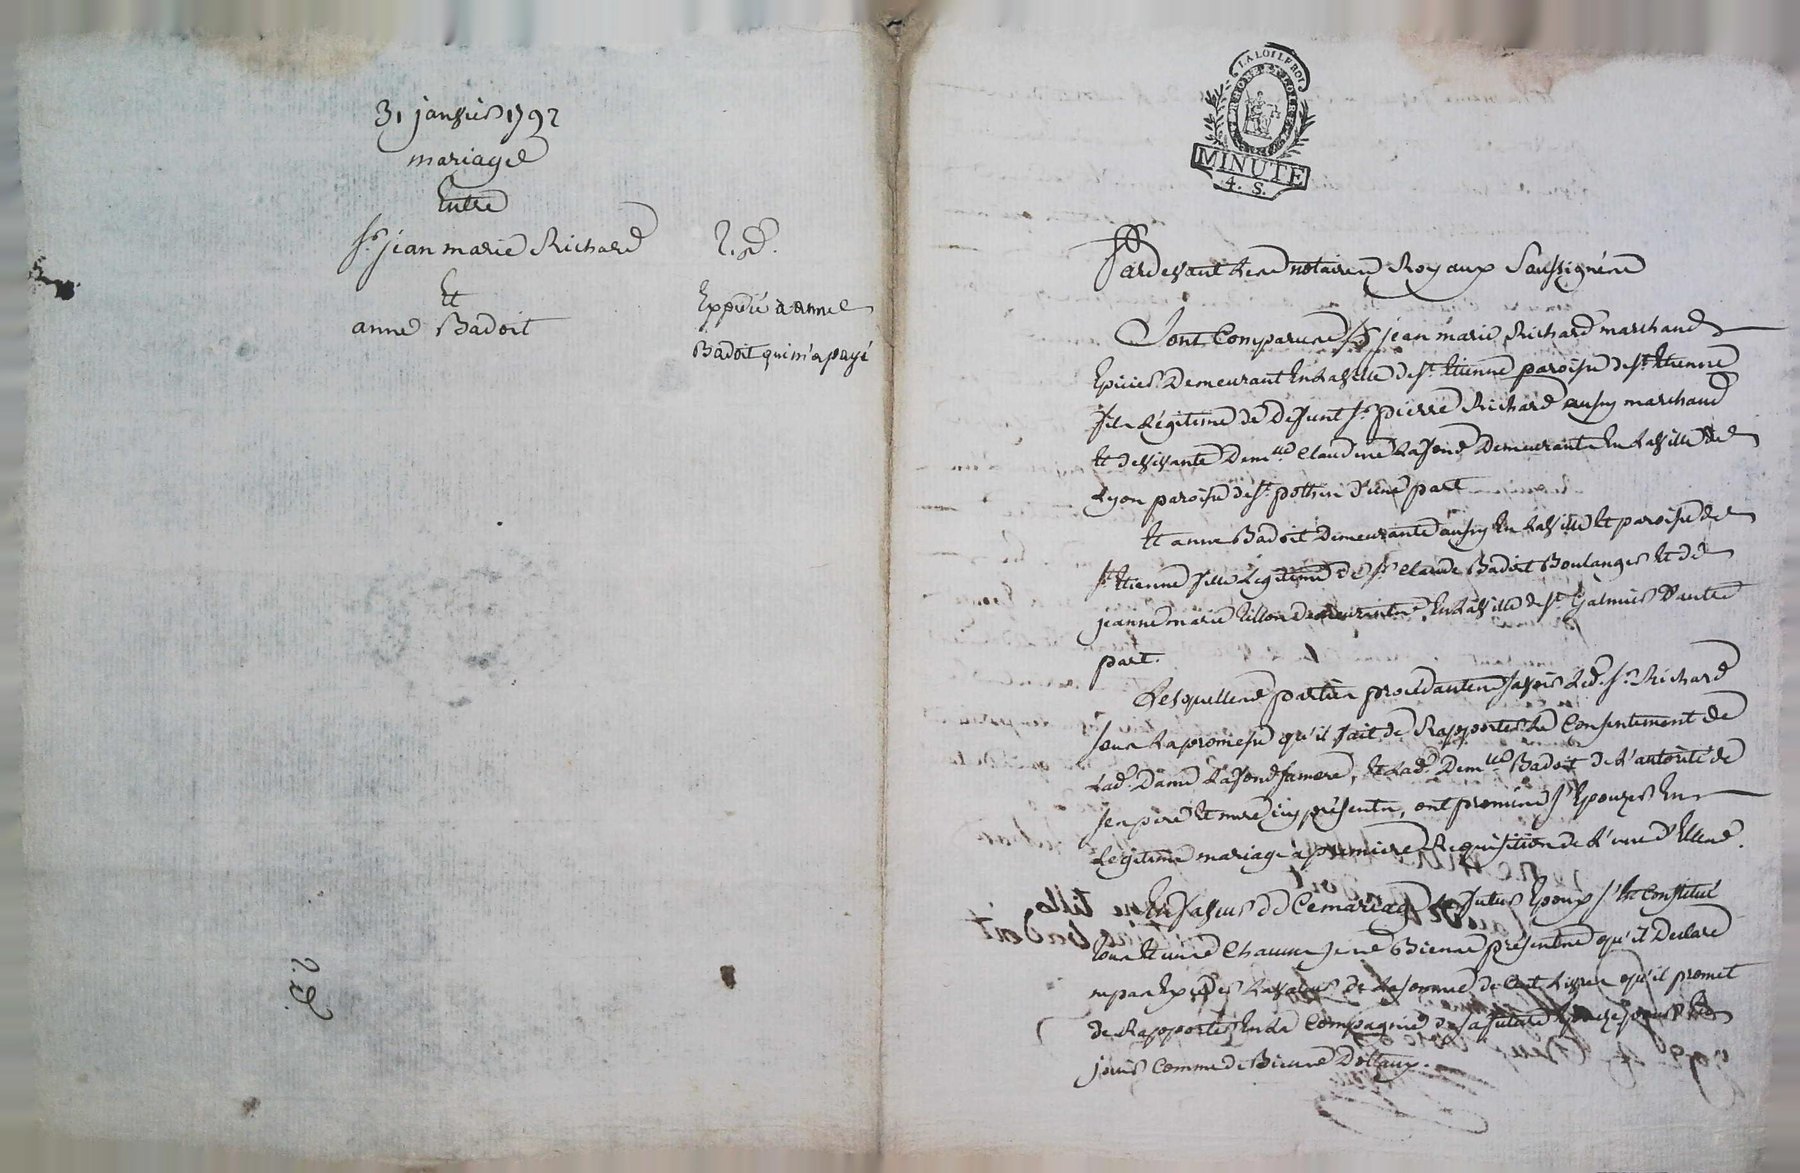 31 janvier 1792
mariage
Entre
sr. jean marie Richard
Et
anne Badoit
2. Ed.
Exppédié a anne
Badoit qui m'a payé
2. Ed.
LA LOI LE ROI
MINUTE
4. S.
Pardevant Les notaires Royaux Soussignés
Sont Comparus sr. jean marie Richard marchand
Epicier Demeurant En La ville de st. Etienne paroisse de st. Etienne
fils Légitime de Defunt sr. pierre Richard aussy marchand
Et de vivante Demlle. Claudine Lafond Demeurante En La ville de
Lyon paroisse de st. pothin d'une part
Et anne Badoit Demeurante aussy En La ville Et paroisse de
st. Etienne fille Legitime de sr. Claude Badoit Boulanger Et de
jeanne marie tillon demeurants En La ville de st. Galmier D'autre
part.
Lesquelles parties procédantes savoir Led. sr. Richard
sous La promesse qu'il fait de Rapporter Le Consentement de
Lad. Dame Lafond sa mere, Et Lad. Demlle. Badoit de L'autorité de
ses pere Et mere icy présents, ont promis s'Epouzer En
Légitime mariage à premiere Requisition de L'une d'Elles.
En faveur de Ce mariage Le futur Epoux s'Est Constitué
tous Et uns Chacuns ses Biens présents qu'il Déclare
ne pas Exceder La valeur de La somme de Cent Livres qu'il promet
de Rapporter En La Compagnie de sa future Epouze pour En
jouir Comme de Biens Dottaux.